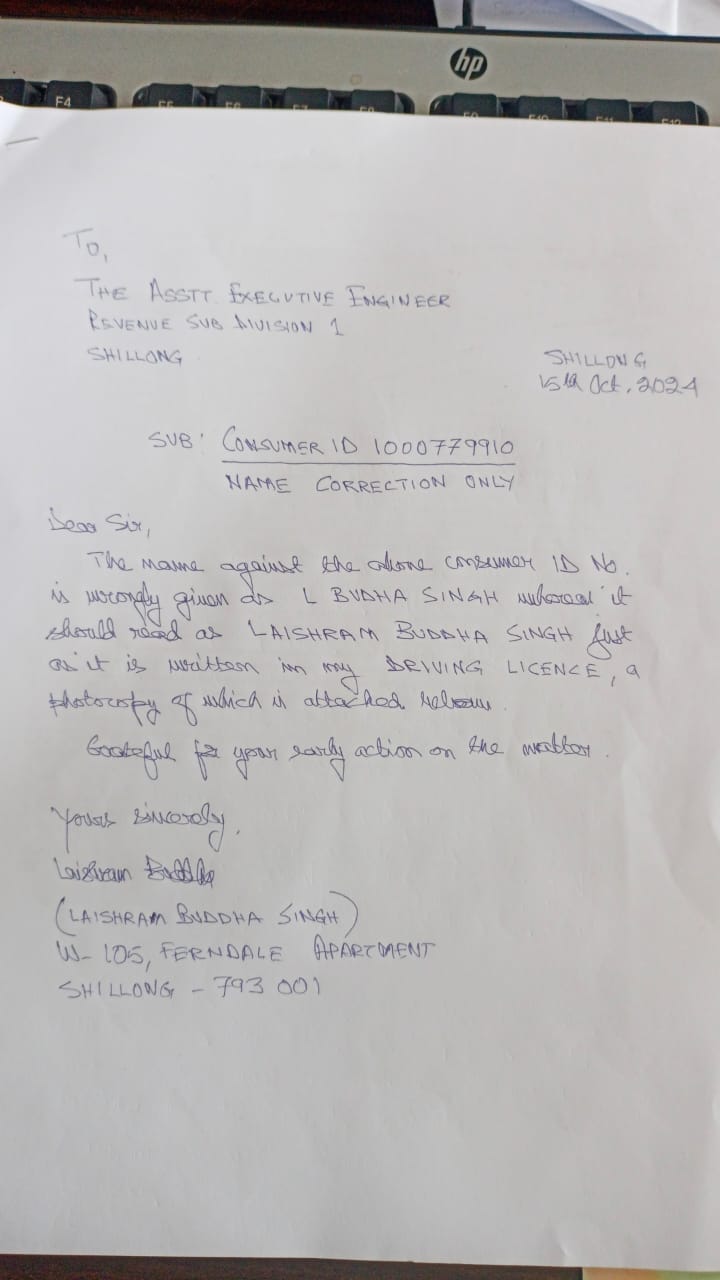 hp
F4
F5 F6 F7 F8 F9 F10 F11 F12
To,
THE ASSTT. EXECUTIVE ENGINEER
REVENUE SUB DIVISION 1
SHILLONG
SHILLONG
15th Oct, 2024
SUB: CONSUMER ID 1000779910
NAME CORRECTION ONLY
Dear Sir,
The name against the above consumer ID No.
is wrongly given as L BUDHA SINGH whereas it
should read as LAISHRAM BUDDHA SINGH just
as it is written in my DRIVING LICENCE, a
photocopy of which is attached below.
Grateful for your early action on the matter.
Yours sincerely,
Laishram Buddha
(LAISHRAM BUDDHA SINGH)
W-105, FERNDALE APARTMENT
SHILLONG - 793 001